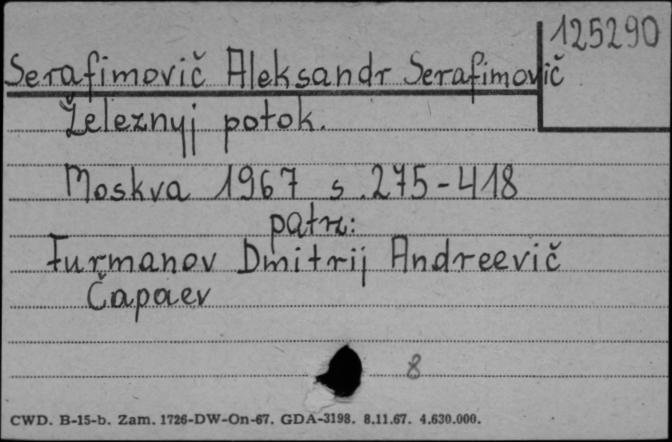 125290
Serafimovič Aleksandr Serafimovič
Železnyj potok.
Moskva 1967 s. 275-418
patrz:
Furmanov Dmitrij Andreevič
Čapaev
8
CWD. B-15-b. Zam. 1726-DW-On-67. GDA-3198. 8.11.67. 4.630.000.